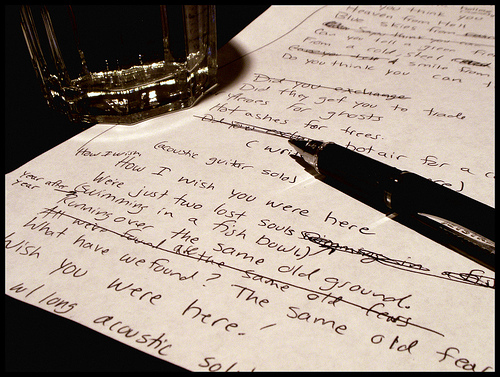 you think you
Heaven from Hell
Blue skies from
Can you tell a green
From a cold steel
a smile from
Do you think you can t
Did you exchange
Did they get you to trade
Heroes for ghosts
Hot ashes for trees.
Did you hot air for a c
(wri
How I wish (acoustic guitar solo)
How I wish you were here
Were just two lost souls
Year after year Swimming in a fish bowl)
Running over the same old ground.
All we've found are the same old fears
What have we found? The same old fear
Wish you were here!
w/ long acoustic solo